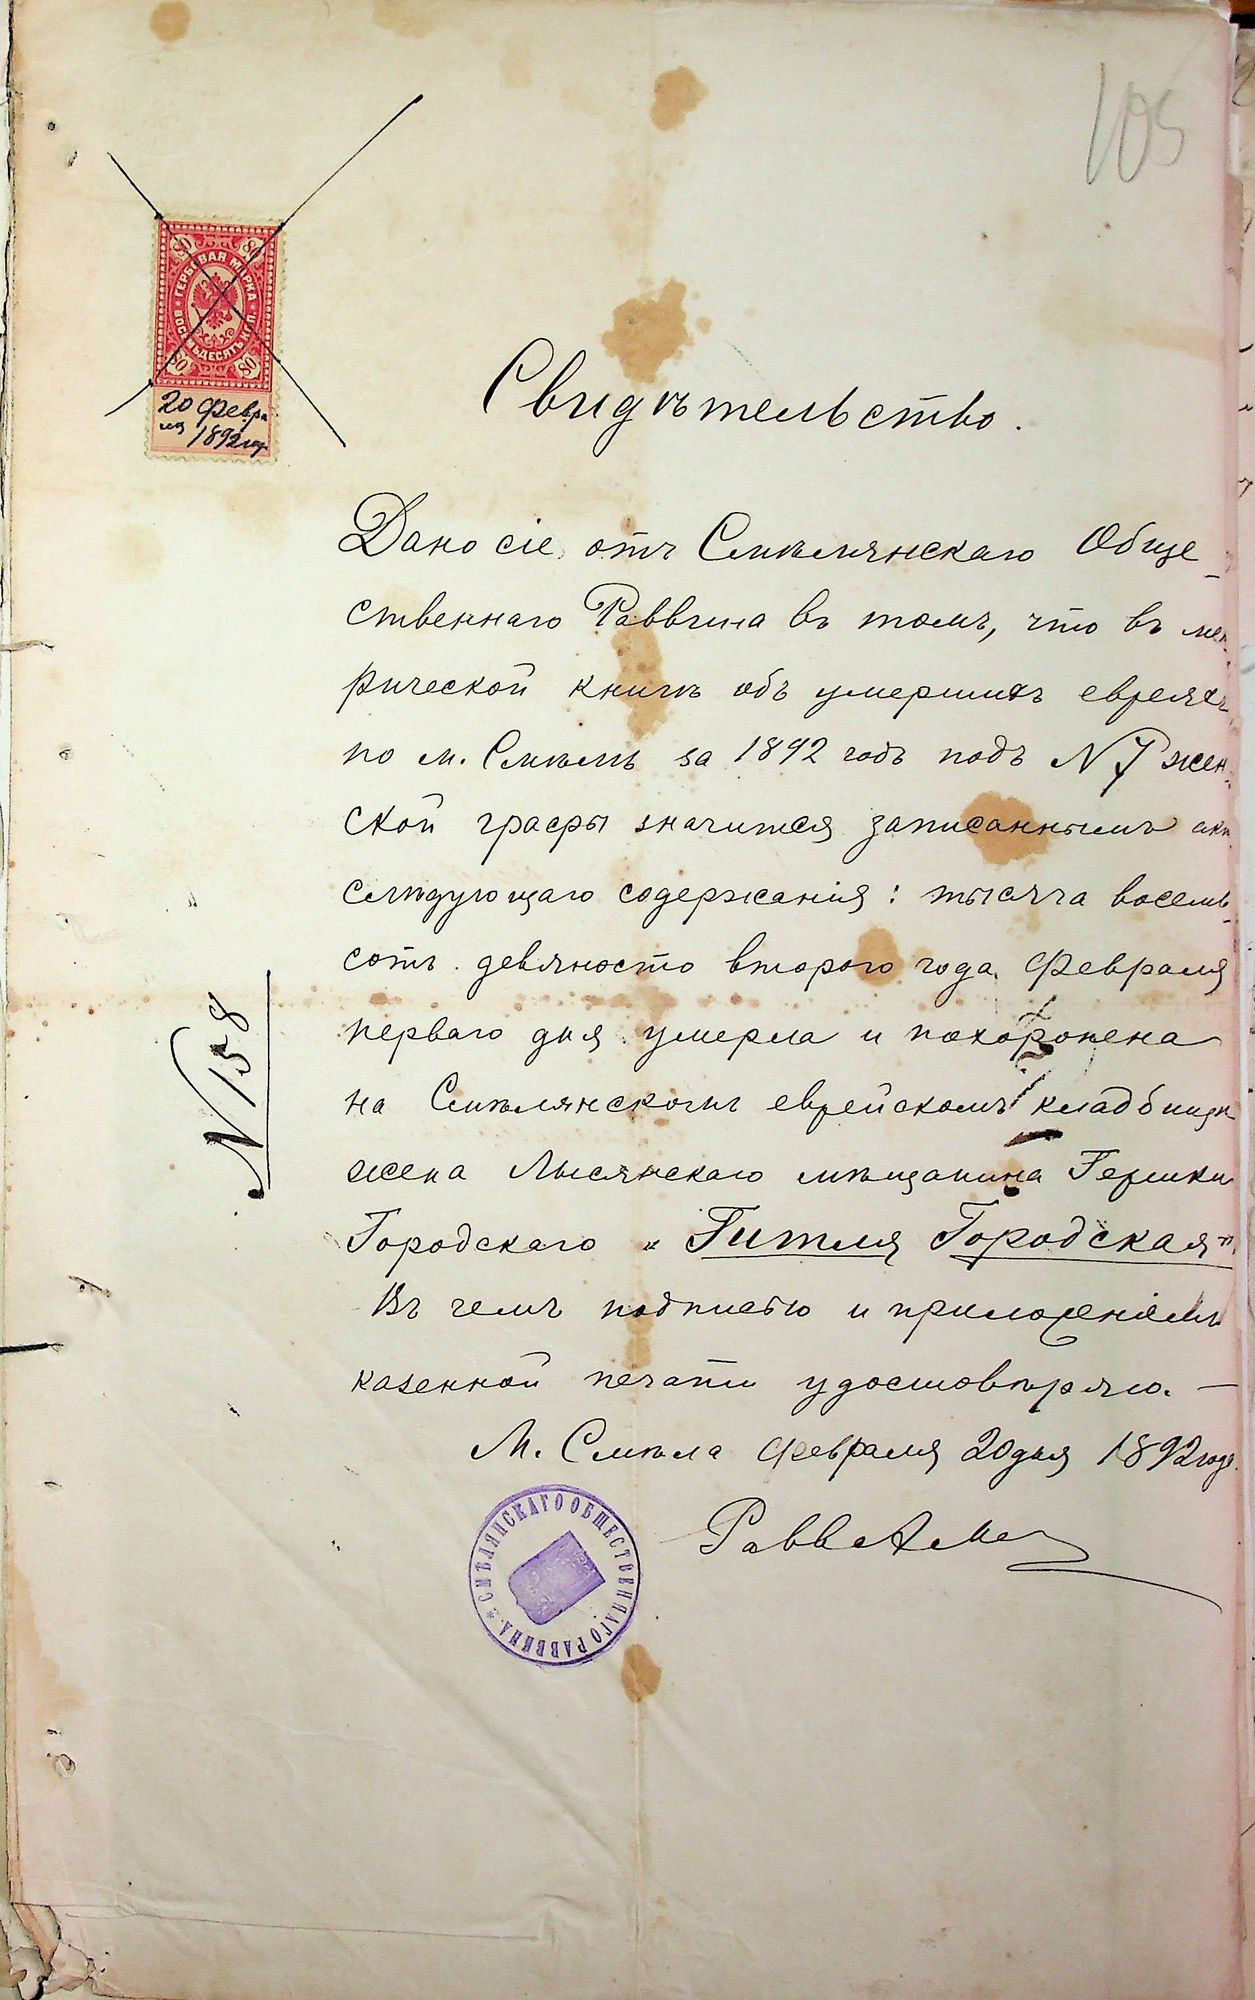 105
80 80
ГЕРБОВАЯ МАРКА
ВОСЕМЬДЕСЯТЪ КОП.
80 80
20 Февра
ля
1892 год
Свидѣтельство.
Дано сіе отъ Смѣлянскаго Обще-
ственнаго Раввина въ томъ, что въ мет
рической книгѣ объ умершихъ евреяхъ
по м. Смѣлѣ за 1892 годъ подъ N 7 жен-
ской графы значится записаннымъ актъ
слѣдующаго содержанія: тысяча восемь-
сотъ девяносто второго года Февраля
перваго дня умерла и похоронена
на Смѣлянскомъ еврейскомъ кладбищѣ
жена Лысянскаго мѣщанина Гершки
Городскаго „Гитля Городская"
Въ чемъ подписью и приложеніемъ
казенной печати удостовѣряю. —
М. Смѣла Февраля 20 дня 1892 года.
Равв
N 158
СМѢЛЯНСКАГО ОБЩЕСТВЕННАГО РАВВИНА *